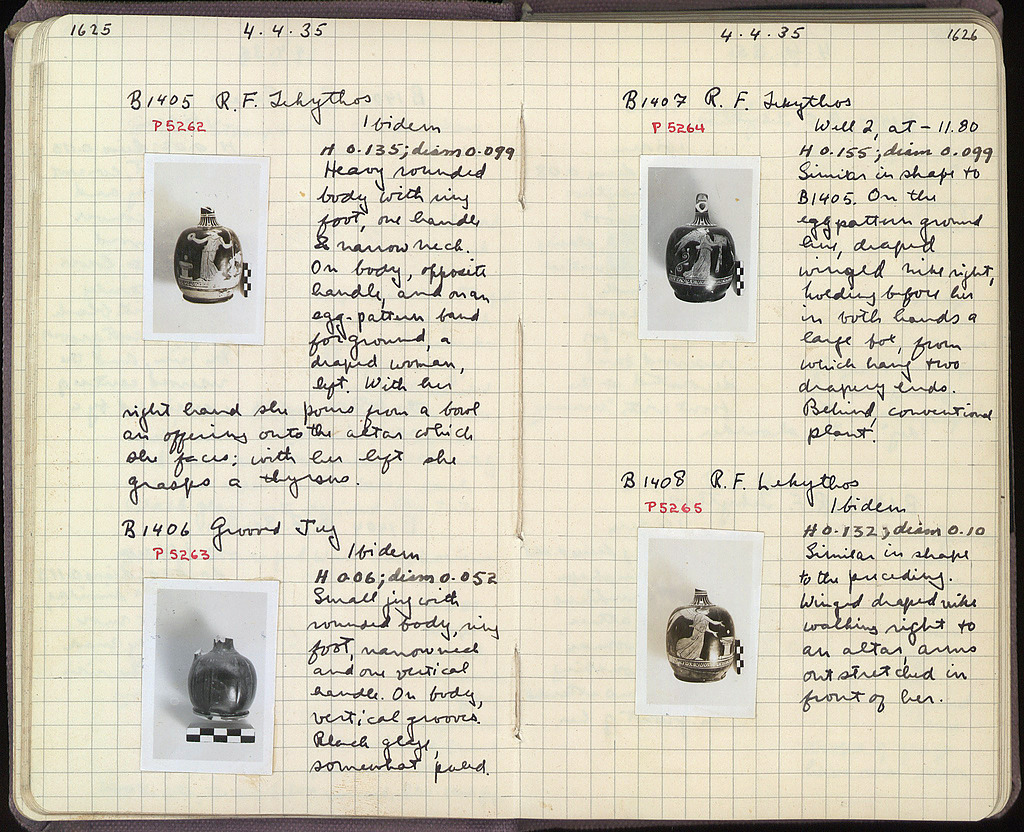 1625 4.4.35
B1405 R.F. Lekythos
P5262 Ibidem
H 0.135; diam 0.099
Heavy rounded
body with ring
foot, one handle
& narrow neck.
On body, opposite
handle, and on an
egg-pattern band
for ground, a
draped woman,
left. With her
right hand she pours from a bowl
an offering onto the altar which
she faces; with her left she
grasps a thyrsus.
B1406 Grooved Jug
P5263 Ibidem
H 0.06; diam 0.052
Small jug with
rounded body, ring
foot, narrow neck
and one vertical
handle. On body,
vertical grooves.
Black glaze,
somewhat peeled.
4.4.35 1626
B1407 R.F. Lekythos
P5264 Well 2, at - 11.80
H 0.155; diam 0.099
Similar in shape to
B1405. On the
egg pattern ground
line, draped
winged nike right,
holding before her
in both hands a
large box, from
which hang two
drapery ends.
Behind, conventional
plant.
B1408 R.F. Lekythos
P5265 Ibidem
H 0.132; diam 0.10
Similar in shape
to the preceding.
Winged draped nike
walking right to
an altar, arms
outstretched in
front of her.